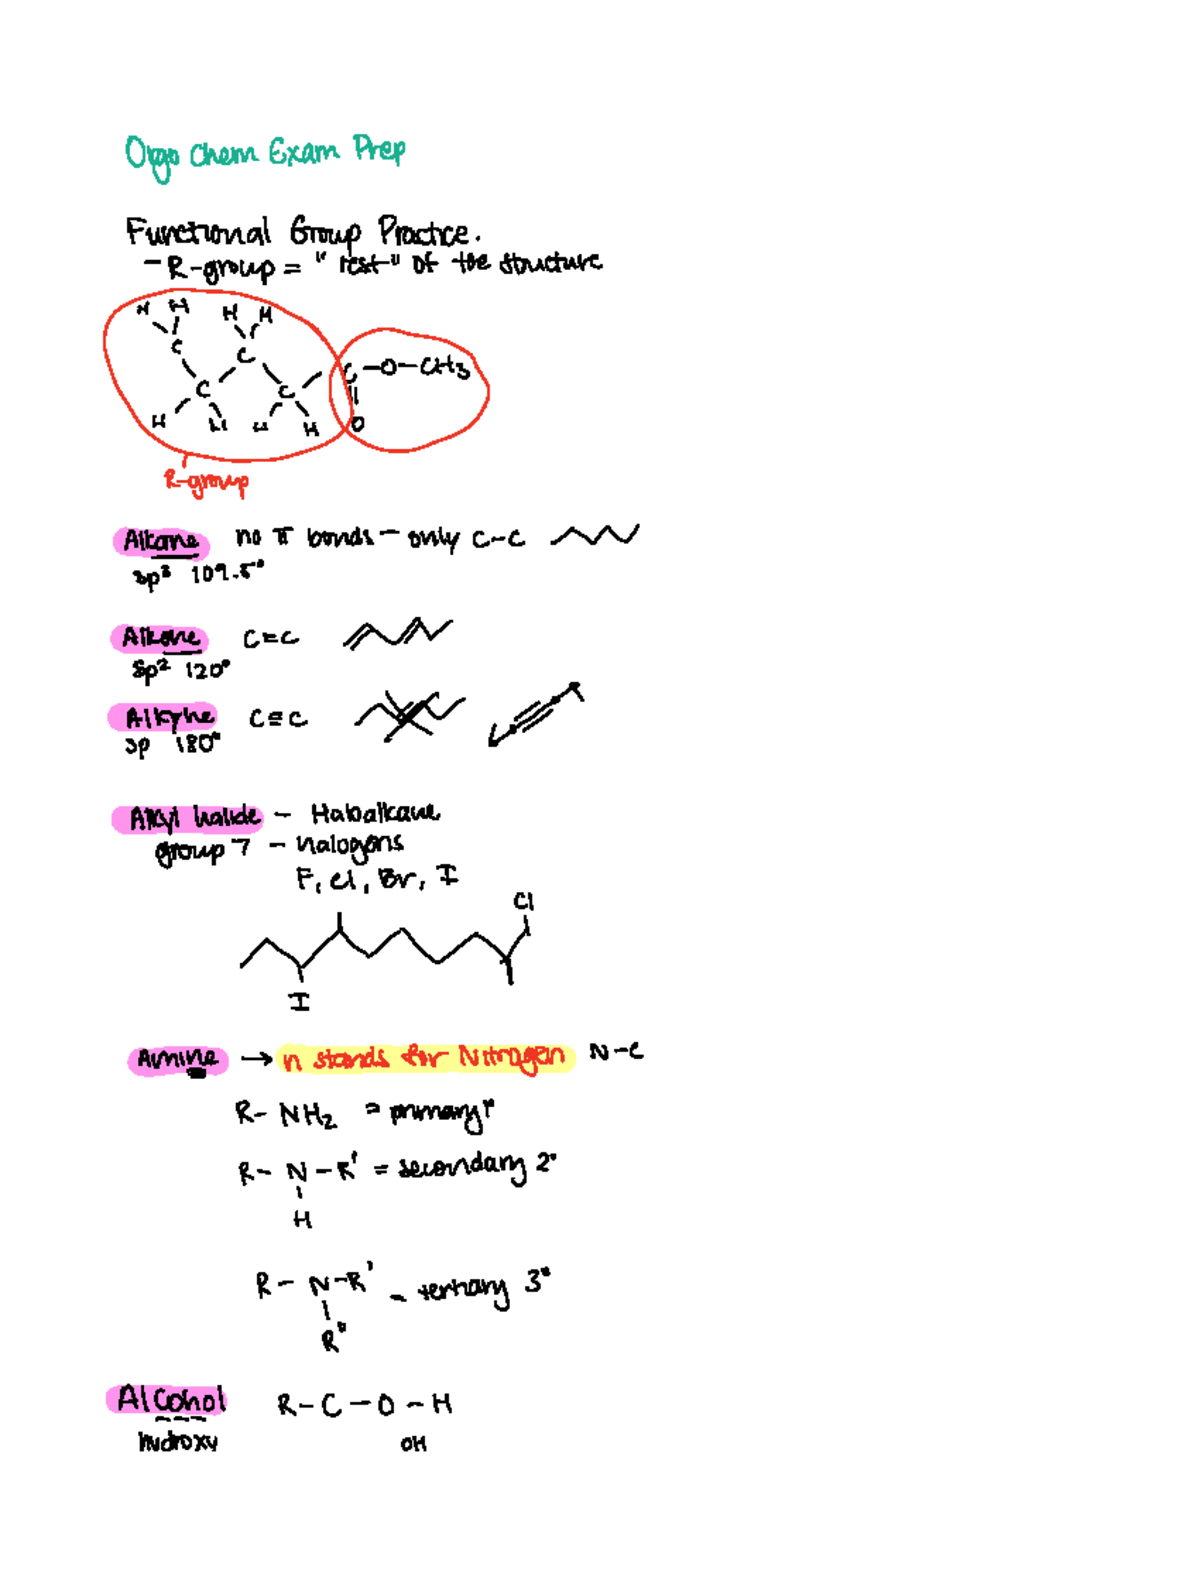 Orgo Chem Exam Prep
Functional Group Practice.
- R-group = "rest" of the structure
H H H H
C C C-O-CH3
C C
H H H H O
R-group
Alkane no π bonds - only C-C
sp³ 109.5°
Alkene C=C
sp² 120°
Alkyne C≡C
sp 180°
Alkyl halide - Haloalkane
group 7 - halogens
F, Cl, Br, I
Cl
I
Amine → n stands for Nitrogen N-C
R- NH2 = primary 1°
R- N -R' = secondary 2°
H
R- N-R' - tertiary 3°
R"
Alcohol R-C-O-H
hydroxy OH